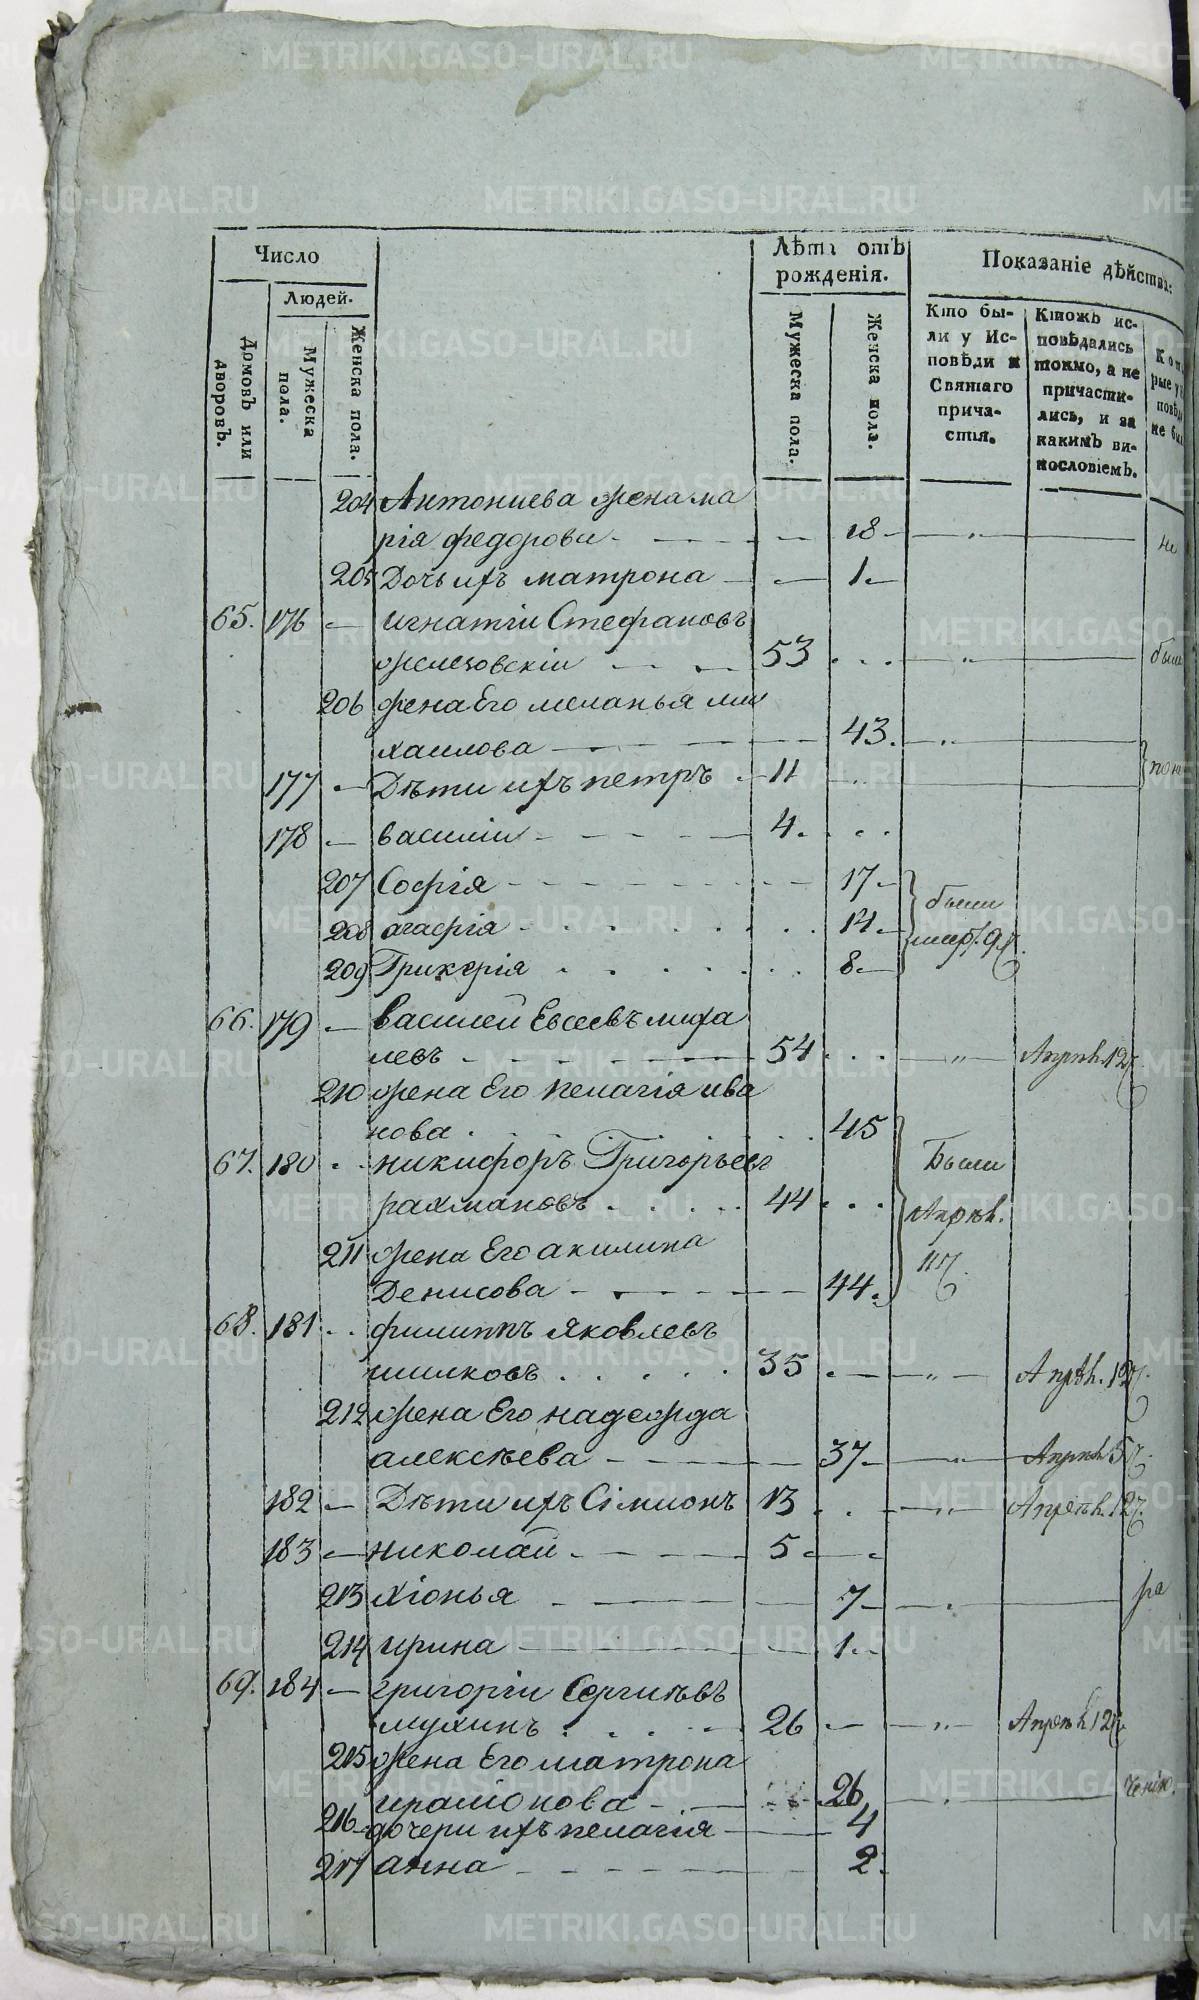 Число
Людей.
Домовъ или дворовъ.
Мужеска пола.
Женска пола.
Лѣта отъ рожденія.
Мужеска пола.
Женска пола.
Показаніе дѣйствъ:
Кто бы-
ли у Ис-
повѣди и
Святаго
прича-
стія.
Ктожъ ис-
повѣдались
токмо, а не
причасти-
лись, и за
какимъ ви-
нословіемъ.
204 Антониева жена ма
рія федорова 18
205 Дочь ихъ матрона 1
65. 176 игнатіи Стефановъ
53 были
206 жена Его меланья ми
хаилова 43.
177 Дѣти ихъ петръ 11
178 василіи 4.
207 Софія 17 были
208 агафія 14
209 Гликерія 8
66. 179 василей Евсеевъ
левъ 54 Апрѣл. 12
210 жена Его пелагія ива
нова 45
67. 180 никифоръ Григорьевъ Были
рахмановъ 44 Апрѣл.
211 жена Его акилина 11
Денисова 44.
68. 181 филиппъ Яковлевъ
шилковъ 35 Апрѣл. 12
212 жена Его надежда
алексѣева 37 Апрѣл 5
182 Дѣти ихъ Сімионъ 13 Апрѣл. 12
183 николай 5
213 хіонья 7
214 ирина 1
69. 184 григоріи Сергиѣвъ
мухинъ 26 Апрѣл 12
215 жена Его матрона
26
216 дочери ихъ пелагія 4
217 анна 2
METRIKI.GASO-URAL.RU